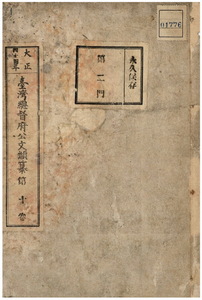 01776
永久保存
第一門
大正
臺灣總督府公文類纂
第十卷